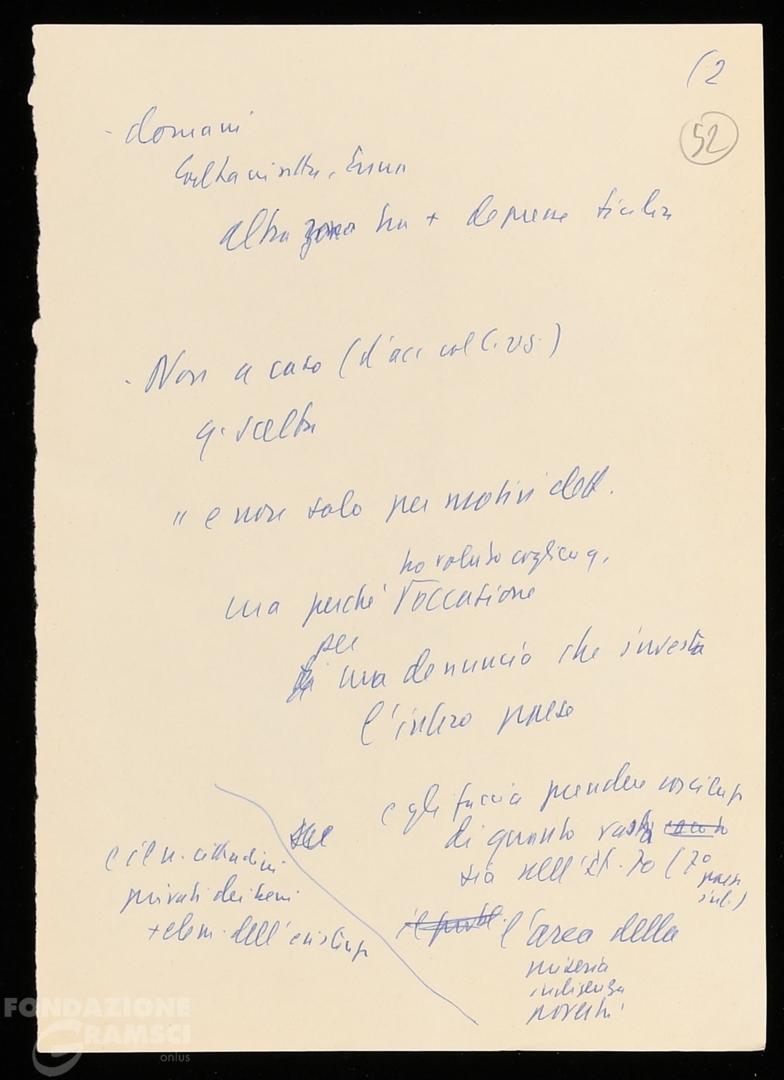 (2
52
- domani
Caltanissetta, Enna
altra zona tra + depresse Sicilia
- Non a caso (d'acc col C. us.)
q. scelta
" e non solo per motivi dett.
ho voluto cogliere q.
ma perché l'occasione
per
una denuncia che investa
l'intero paese
e gli faccia prendere coscienza
di quanto vasta
sia nell'It. 70 (7º
paese
ind.)
l'area della
miseria
indigenza
povertà
e il n. cittadini
privati dei beni
+ elem. dell'esistenza
FONDAZIONE
GRAMSCI
onlus